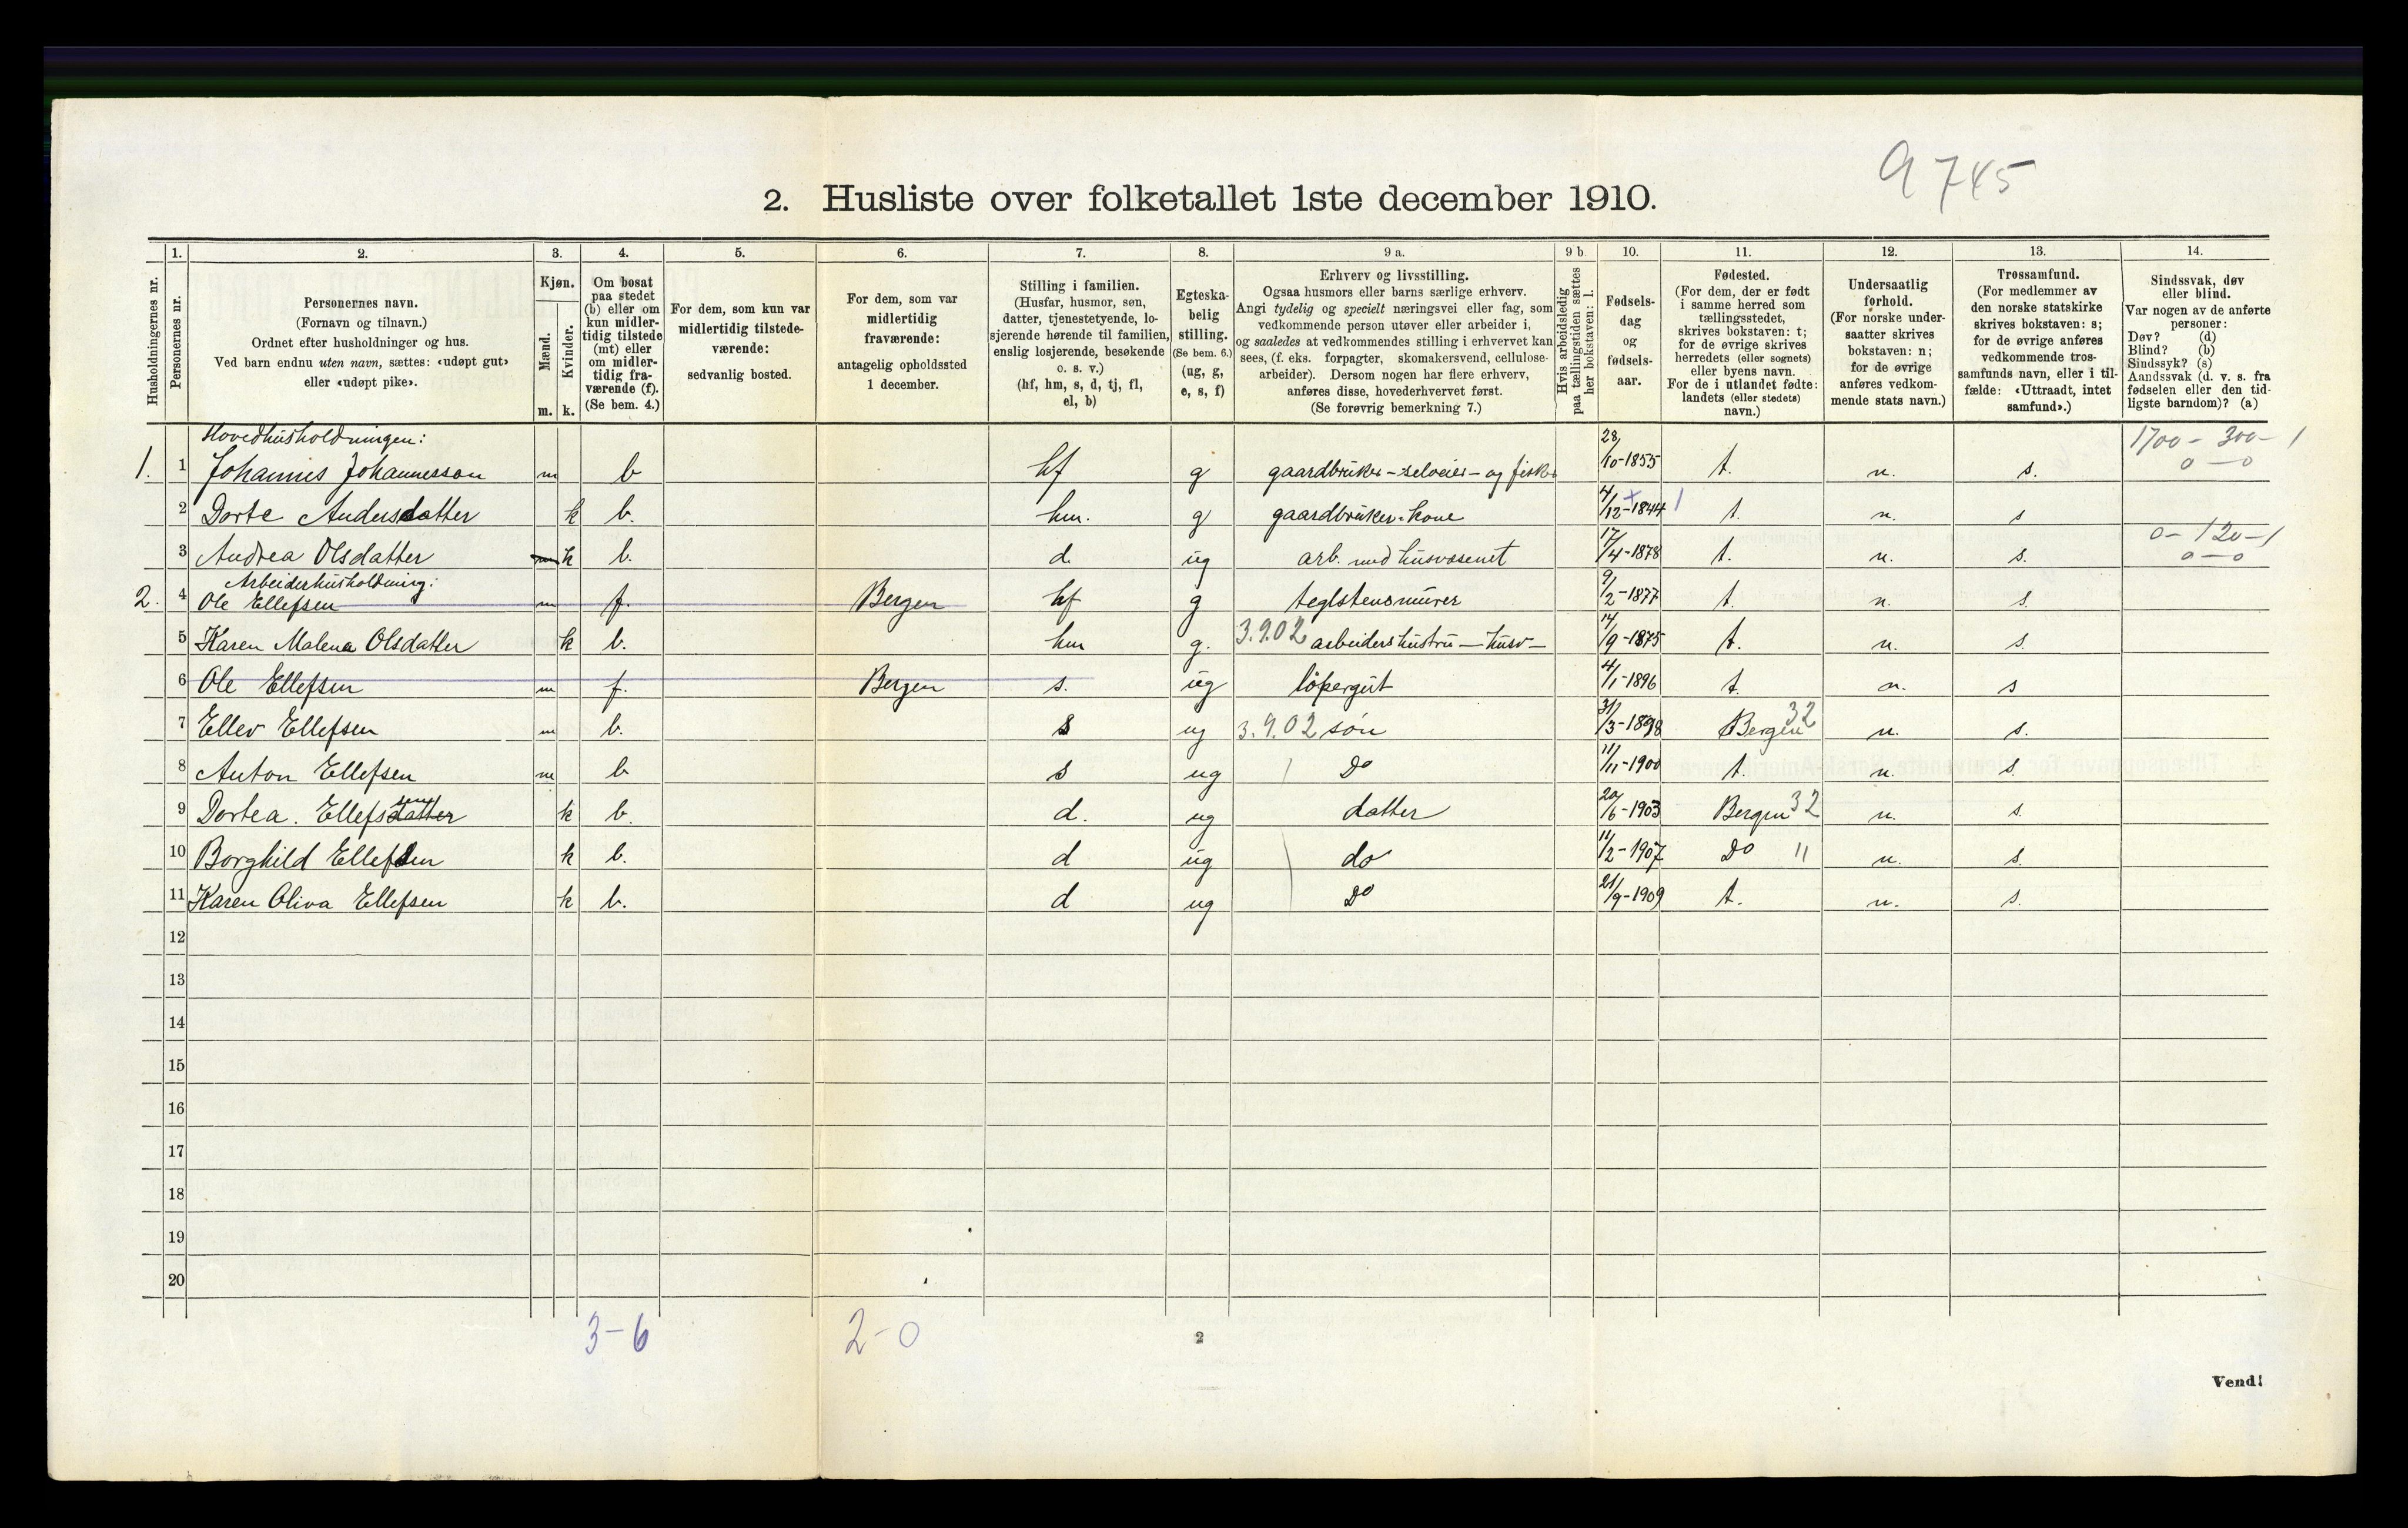 9745
2. Husliste over folketallet 1ste december 1910.
Husholdningernes nr.
1.
Personernes nr.
2.
Personernes navn.
(Fornavn og tilnavn.)
Ordnet efter husholdninger og hus.
Ved barn endnu uten navn, sættes: «udøpt gut»
eller «udøpt pike».
3.
Kjøn.
Mænd.
m.
Kvinder.
k.
4.
Om bosat
paa stedet
(b) eller om
kun midler-
tidig tilstede
(mt) eller
om midler-
tidig fra-
værende (f).
(Se bem. 4.)
5.
For dem, som kun var
midlertidig tilstede-
værende:
sedvanlig bosted.
6.
For dem, som var
midlertidig
fraværende:
antagelig opholdssted
1 december.
7.
Stilling i familien.
(Husfar, husmor, søn,
datter, tjenestetyende, lo-
sjerende hørende til familien,
enslig losjerende, besøkende
o. s. v.)
(hf, hm, s, d, tj, fl,
el, b)
8.
Egteska-
belig
stilling.
(Se bem. 6.)
(ug, g,
e, s, f)
9 a.
Erhverv og livsstilling.
Ogsaa husmors eller barns særlige erhverv.
Angi tydelig og specielt næringsvei eller fag, som
vedkommende person utøver eller arbeider i,
og saaledes at vedkommendes stilling i erhvervet kan
sees, (f. eks. forpagter, skomakersvend, cellulose-
arbeider). Dersom nogen har flere erhverv,
anføres disse, hovederhvervet først.
(Se forøvrig bemerkning 7.)
9 b
Hvis arbeidsledig
paa tællingstiden sættes
her bokstaven: l.
10.
Fødsels-
dag
og
fødsels-
aar.
11.
Fødested.
(For dem, der er født
i samme herred som
tællingsstedet,
skrives bokstaven: t;
for de øvrige skrives
herredets (eller sognets)
eller byens navn.
For de i utlandet fødte:
landets (eller stedets)
navn.)
12.
Undersaatlig
forhold.
(For norske under-
saatter skrives
bokstaven: n;
for de øvrige
anføres vedkom-
mende stats navn.)
13.
Trossamfund.
(For medlemmer av
den norske statskirke
skrives bokstaven: s;
for de øvrige anføres
vedkommende tros-
samfunds navn, eller i til-
fælde: «Uttraadt, intet
samfund».)
14.
Sindssvak, døv
eller blind.
Var nogen av de anførte
personer:
Døv? (d)
Blind? (b)
Sindssyk? (s)
Aandssvak (d. v. s. fra
fødselen eller den tid-
ligste barndom)? (a)
Hovedhusholdningen: 1700 - 300 - 1
1. 1 Johannes Johannesson m b hf g gaardbruker - selveier - og fisker 28/10-1855 t. n. s. 0 - 0
2 Dorte Andersdatter k b. hm. g gaardbruker-kone 4/12-1844 t. n. s
3 Andrea Olsdatter m k b. d. ug arb. med husvæsenet 17/4-1878 t. n. s. 0 - 120 - 1
0 - 0
Arbeiderhusholdning:
2. 4 Ole Ellefsen m f. Bergen hf g teglstensmurer 9/2-1877 t. n. s.
5 Karen Malena Olsdatter k b. hm g. 3.9.02 arbeiders hustru - husv - 14/9-1875 t. n. s.
6 Ole Ellefsen m f. Bergen s. ug løpergut 4/1-1896 t. n. s
7 Ellev Ellefsen m b. s ug 3.9.02 søn 31/3-1898 Bergen 32 n. s.
8 Anton Ellefsen m b s ug Do 11/11-1900 t. n. s.
9 Dortea. Ellefsdatter sen k b. d. ug datter 20/6-1903 Bergen 32 n. s.
10 Borghild Ellefsen k b. d ug do 11/2-1907 Do " n. s.
11 Karen Oliva Ellefsen k b. d ug Do 21/9-1909 t. n. s.
12
13
14
15
16
17
18
19
20
3-6 2-0
2
Vend!